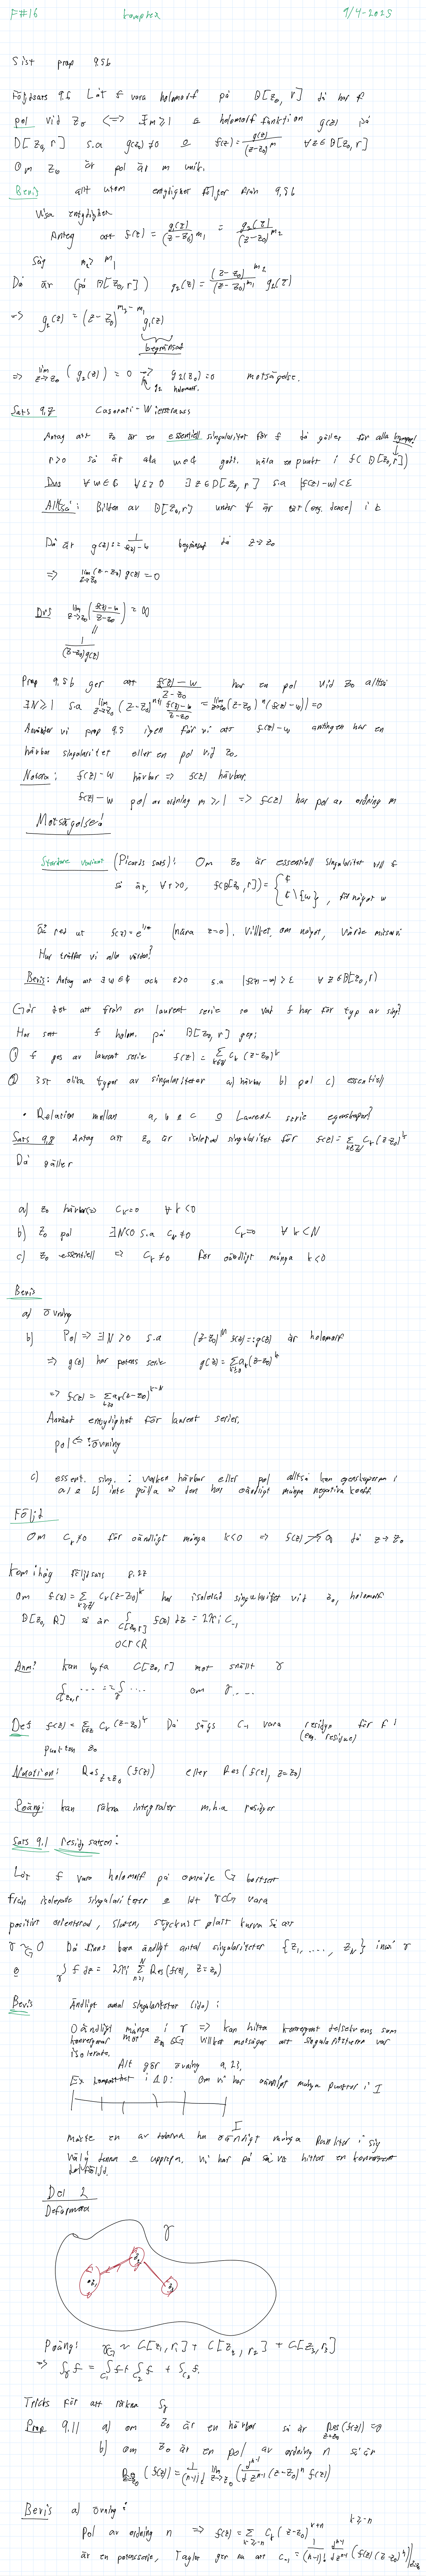 F#16 komplex 9/4-2025
Sist prop 9.5b
Följdsats 9.6 Låt f vara holomorf på Ḋ[z₀, r] då har f
pol vid z₀ <=> ∃ m≥1 & holomorf funktion g(z) på
D[z₀, r] s.a g(z₀) ≠ 0 & f(z) = g(z)/(z-z₀)^m ∀ z ∈ Ḋ[z₀, r]
Om z₀ är pol är m unik.
Bevis allt utom entydighet följer från 9.5b
Visa entydighet
Antag att f(z) = g(z)/(z-z₀)^m₁ = g₂(z)/(z-z₀)^m₂
Säg m₂ > m₁
Då är (på Ḋ[z₀, r]) g₂(z) = (z-z₀)^m₂/(z-z₀)^m₁ g₁(z)
=> g₂(z) = (z-z₀)^(m₂-m₁) g₁(z)
begränsad
=> lim z→z₀ (g₂(z)) = 0 => g₂(z₀) = 0 motsägelse.
g₂ holomorf.
Sats 9.7 Casorati-Wierstrass
Antag att z₀ är en essentiell singularitet för f då gäller för alla
r>0 så är alla w∈ℂ godt. nära en punkt i f(Ḋ[z₀, r])
Dvs ∀ w∈ℂ ∀ε>0 ∃ z∈Ḋ[z₀, r] s.a |f(z)-w|<ε
Alltså: Bilden av Ḋ[z₀, r] under f är tät (eng. dense) i ℂ
Då är g(z) := 1/(f(z)-w) begränsad då z→z₀
=> lim z→z₀ (z-z₀) g(z) = 0
Dvs lim z→z₀ |(f(z)-w)/(z-z₀)| = ∞
||
1/((z-z₀)g(z))
Prop 9.5b ger att (f(z)-w)/(z-z₀) har en pol vid z₀ alltså
∃N≥1 s.a lim z→z₀ (z-z₀)^(n+1) (f(z)-w)/(z-z₀) = lim z→z₀ (z-z₀)^n (f(z)-w) = 0
Använder vi prop 9.5 igen får vi att f(z)-w antingen har en
hävbar singularitet eller en pol vid z₀.
Notera: f(z)-w hävbar => f(z) hävbar.
f(z)-w pol av ordning m≥1 => f(z) har pol av ordning m
Motsägelse!
Starkare variant (Picards sats): Om z₀ är essentiell singularitet till f
så är, ∀ r>0, f(Ḋ[z₀, r]) = { ℂ
ℂ\{w}, för något w
Så red ut f(z) = e^(1/z) (nära z=0). Vilket, om något, värde missar vi
Hur träffar vi alla värden?
Bevis: Antag att ∃ w∈ℂ och ε>0 s.a |f(z)-w| > ε ∀ z∈Ḋ[z₀, r]
Går det att från en laurent serie se vad f har för typ av sing?
Har sett f holom. på Ḋ[z₀, r] ger:
① f ges av laurent serie f(z) = Σ k∈ℤ Cₖ (z-z₀)^k
② 3st olika typer av singulariteter a) hävbar b) pol c) essentiell
• Relation mellan a, b & c & Laurent serie egenskaper?
Sats 9.8 Antag att z₀ är isolerad singularitet för f(z) = Σ k∈ℤ Cₖ (z-z₀)^k
Då gäller
a) z₀ hävbar <=> Cₖ=0 ∀ k<0
b) z₀ pol ∃N<0 s.a C_N≠0 Cₖ=0 ∀ k<N
c) z₀ essentiell <=> Cₖ≠0 för oändligt många k<0
Bevis
a) övning
b) Pol => ∃N>0 s.a (z-z₀)^N f(z) =: g(z) är holomorf
=> g(z) har potens serie g(z) = Σ k≥0 aₖ(z-z₀)^k
=> f(z) = Σ k≥0 aₖ(z-z₀)^(k-N)
Använd entydighet för laurent serier.
pol <= : övning
c) essent. sing. : varken hävbar eller pol alltså kan egenskaperna i
a) & b) inte gälla => den har oändligt många negativa koeff.
Följd
Om Cₖ≠0 för oändligt många k<0 => f(z) ↛ a då z→z₀
Kom ihåg följdsats 8.27
Om f(z) = Σ k∈ℤ Cₖ(z-z₀)^k har isolerad singularitet vid z₀, holomorf
Ḋ[z₀, R] så är ∫ C[z₀, r] f(z) dz = 2πi C₋₁
0<r<R
Anm: kan byta C[z₀, r] mot snällt γ
∫ C[z₀, r] .... = ∫γ .... om γ ....
Def f(z) = Σ k∈ℤ Cₖ(z-z₀)^k Då sägs C₋₁ vara residyn för f i
(eng. residue)
punkten z₀
Notation: Res z=z₀ (f(z)) eller Res(f(z), z=z₀)
Poäng: kan räkna integraler m.h.a residyer
Sats 9.1 residysatsen:
Låt f vara holomorf på område G bortsett
från isolerade singulariteter & låt γ⊂G vara
positivt orienterad, sluten, styckvist slät kurva s.a
γ ~_G 0 Då finns bara ändligt antal singulariteter {z₁, ..., z_N} inuti γ
& ∫γ f dz = 2πi Σ n=1 N Res(f(z), z=zₙ)
Bevis Ändligt antal singulariteter (ide):
Oändligt många i γ => kan hitta konvergent delsekvens som
konvergerar mot z₀∈G vilket motsäger att singulariteterna var
isolerade.
Alt gör övning 9.23.
Ex kompakthet i 1D: Om vi har oändligt många punkter i I
I
måste en av delarna ha oändligt många punkter i sig
Välj denna & upprepa. Vi har på så vis hittat en konvergent
delföljd.
Del 2
Deformera
γ
z₁
z₂
z₃
Poäng: γ ~_G C[z₁, r₁] + C[z₂, r₂] + C[z₃, r₃]
=> ∫γ f = ∫C₁ f + ∫C₂ f + ∫C₃ f.
Tricks för att räkna ∫γ
Prop 9.11 a) om z₀ är en hävbar så är Res z=z₀ (f(z)) = 0
b) om z₀ är en pol av ordning n så är
Res z=z₀ (f(z)) = 1/(n-1)! lim z→z₀ (d^(n-1)/dz^(n-1) (z-z₀)^n f(z))
Bevis a) övning:
Pol av ordning n => f(z) = Σ k≥-n Cₖ (z-z₀)^(k+n) k≥-n
är en potensserie, Taylor ger nu att C₋₁ = 1/(n-1)! d^(n-1)/dz^(n-1) (f(z)(z-z₀)^n)| z=z₀